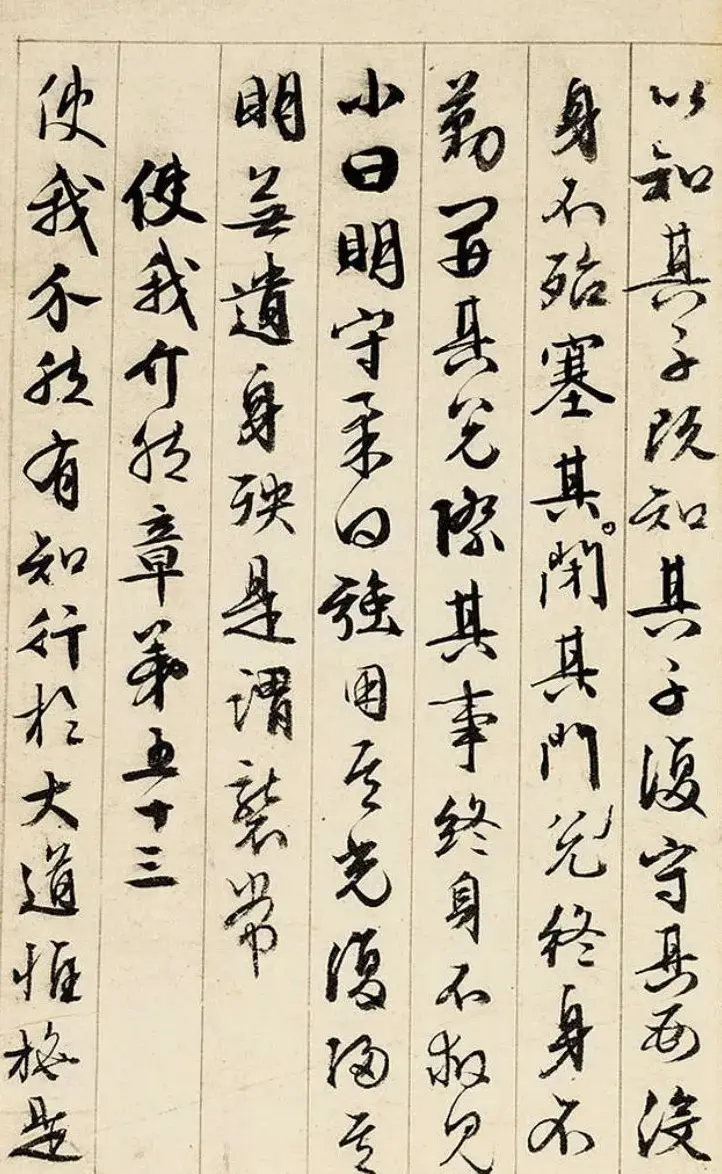 以知其子既知其子復守其母没
身不殆塞其。閉其門兌終身不
勤開其兌際其事終身不救見
小曰明守柔曰強用其光復歸其
明無遺身殃是謂襲常
使我介然章第五十三
使我介然有知行於大道惟施是